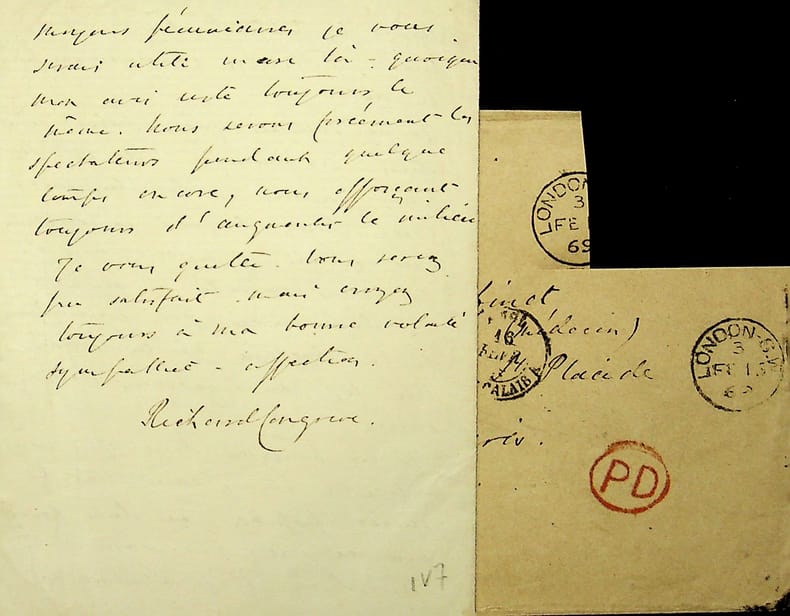 moyens pécuniaires je vous
serais utile mais là - quoique
mon avis reste toujours le
même. Nous serons forcément les
spectateurs pendant quelque
temps encore, nous efforçant
toujours d'augmenter le milieu
Je vous quitte. Vous serez
peu satisfait. mais croyez
toujours à ma bonne volonté
sympathie - affection.
Richard Congreve.
IV7
LONDON
3
FE
69
(médecin)
Placide
ris.
16
CALAIS
LONDON-S.W
3
FE 15
69
PD